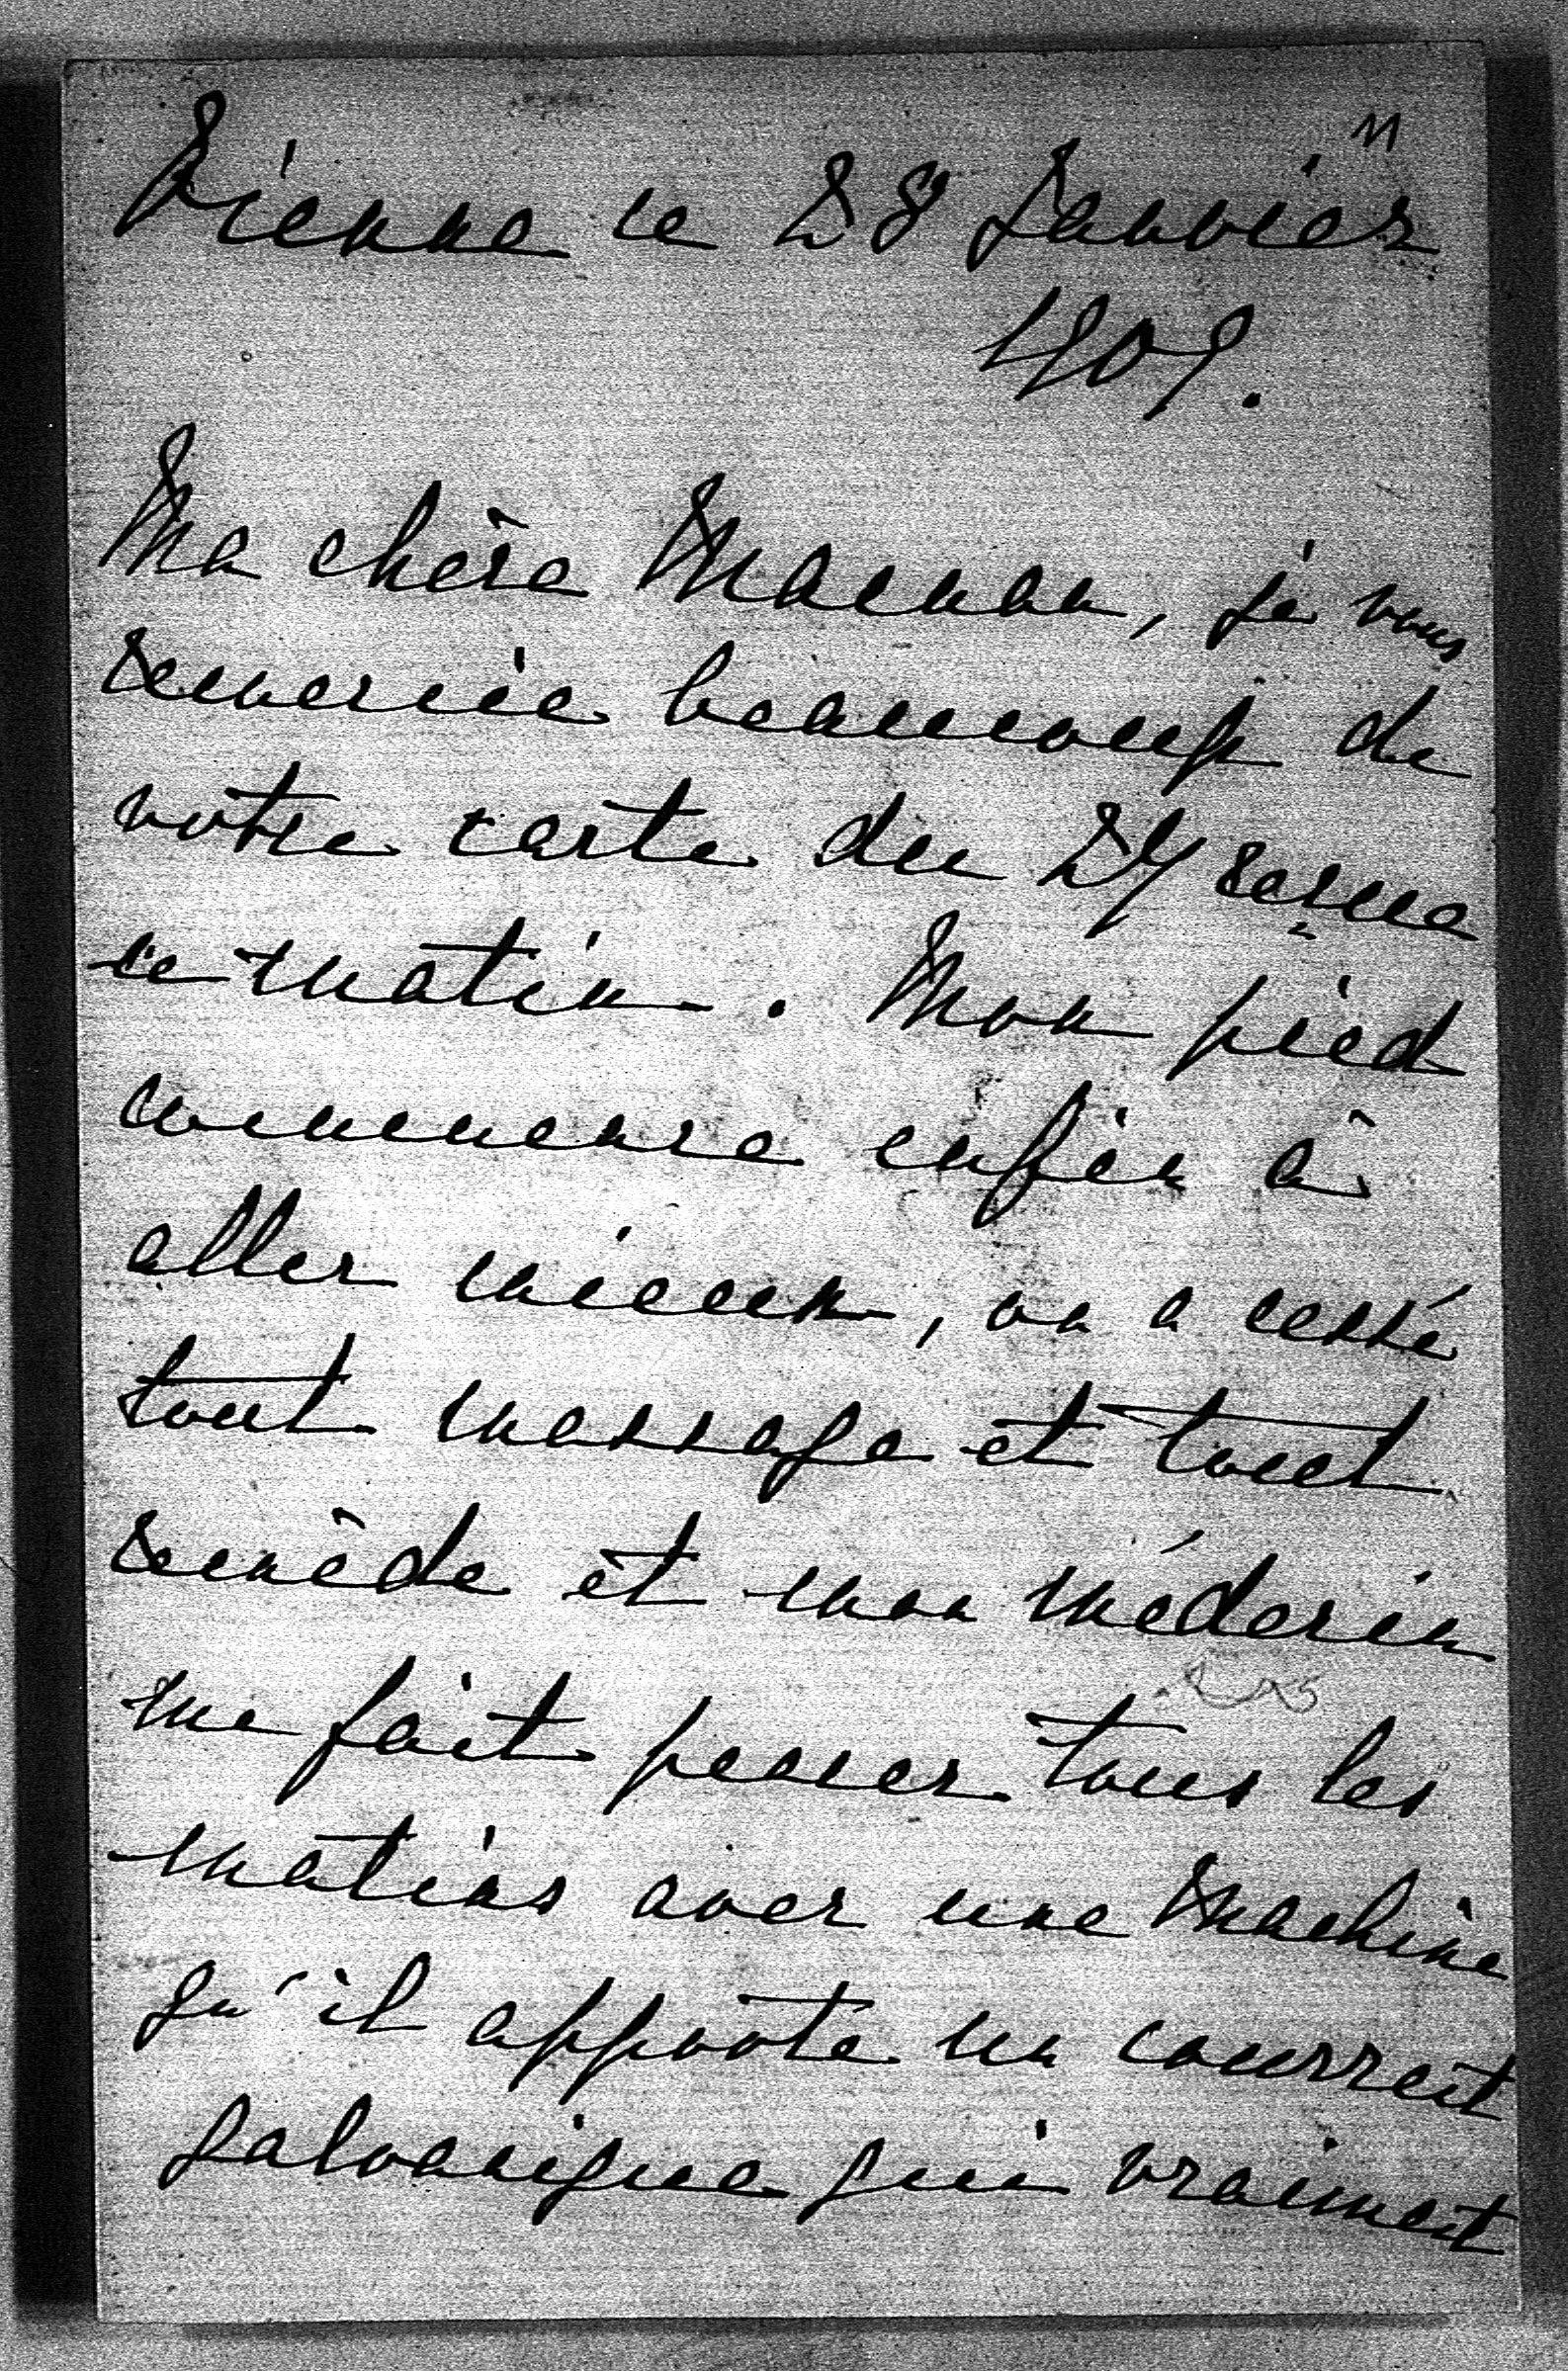 11
Vienne le 28 Janvier
1909.
Ma chère Maman, je vous
remercie beaucoup de
votre carte du 24 reçue
ce matin. Mon pied
commence enfin à
aller mieux, on a cessé
tout massage et tout
remède et mon médecin
me fait passer tous les
matins avec une machine
qu'il apporte un courreit
galvanique qui vraiment